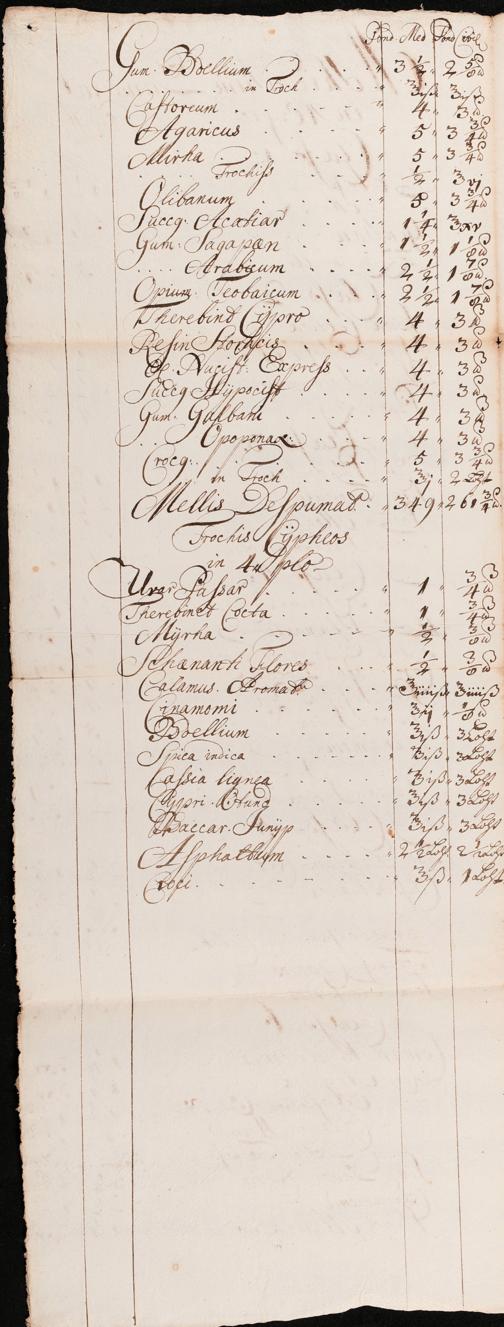 Pond Med Pond Civil
Gum: Boellium 3 ½ 2 5/8 ℔
in Troch ʒiß ʒiß
Castoreum 4 3 ℔
Agaricus 5 3 ¾ ℔
Mirha 5 3 ¾ ℔
Trochiss ½ ʒvj
Olibanum 5 3 ¾ ℔
Succq: Acatiar 1 ¼ ʒxv
Gum: Sagapæn 1 ½ 1 1/8 ℔
Arabicum 2 ½ 1 7/8 ℔
Opium Teobaicum 2 ½ 1 7/8 ℔
Therebind Cypro 4 3 ℔
Resin Storacis 4 3 ℔
Ol. Nucist: Express 4 3 ℔
Succq Hypocist 4 3 ℔
Gum: Galbani 4 3 ℔
Opoponax 4 3 ℔
Crocq: 5 3 ¾ ℔
in Troch ʒj 2
Mellis Despumad 349 261 ¾ ℔
Trochis Cypheos
in 4u plo
Uvar Passar 1 ¾ ℔
Therebinct Cocta 1 ¾ ℔
Myrha ½ 3/8 ℔
Schænanth Flores ½ 3/8 ℔
Calamus Aromat ʒiiiiß ʒiiiiß
Cinamomi ʒij 1/8 ℔
Boellium ʒiß 3 Loht
Spica indica ʒiß 3 Loht
Cassia lignea ʒiß 3 Loht
Cypri Rotund ʒiß 3 Loht
Baccar Junip ʒiß 3 Loht
Asphaltum 2 ½ Loht 2 ½ Loht
Croci ʒiß 1 Loht